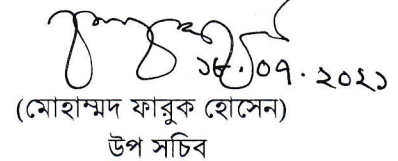 ১৮.০৭.২০২১
(মোহাম্মদ ফারুক হোসেন)
উপ সচিব